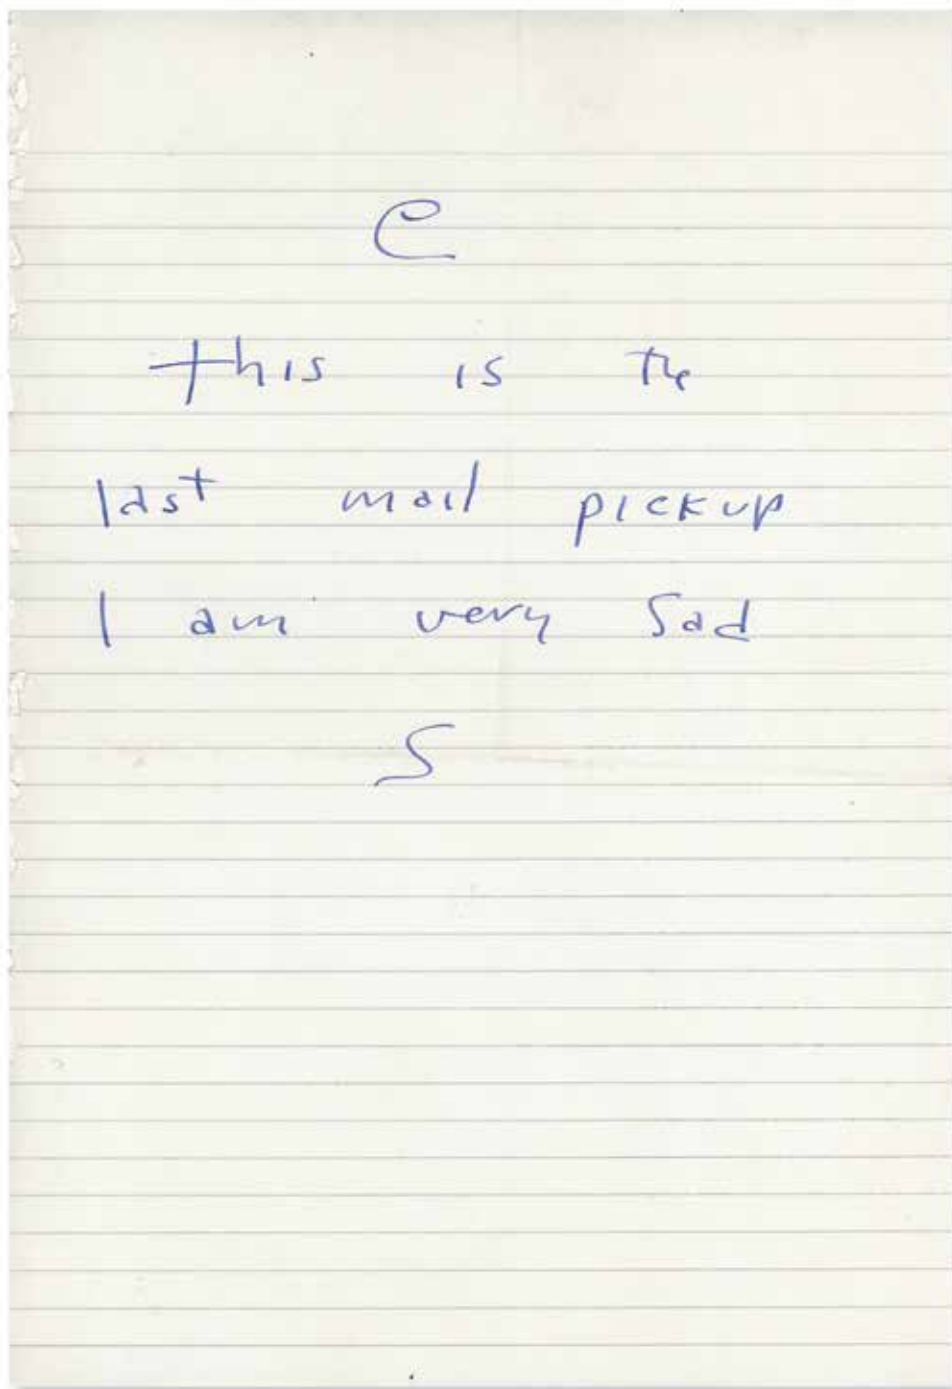 C
this is the
last mail pickup
I am very Sad
S